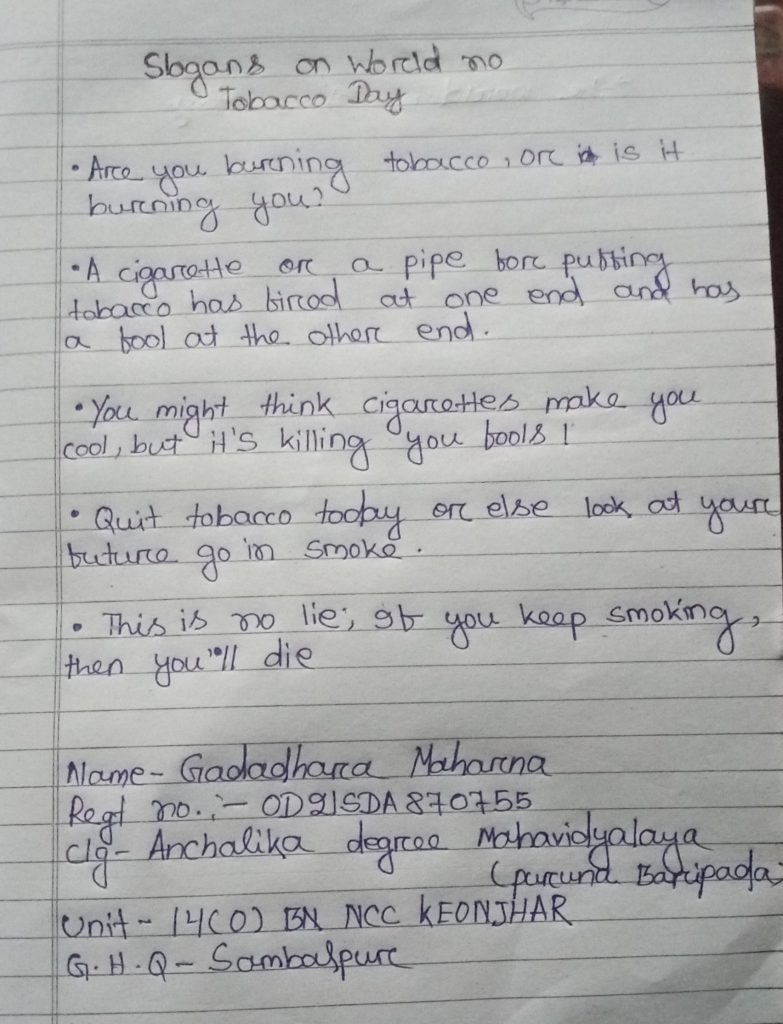 Slogans on World no
Tobacco Day
• Are you burning tobacco, or is it
burning you?
• A cigarette or a pipe for puffing
tobacco has fired at one end and has
a fool at the other end.
• You might think cigarettes make you
cool, but it's killing you fools!
• Quit tobacco today or else look at your
future go in smoke.
• This is no lie; If you keep smoking,
then you'll die
Name - Gadadhara Maharna
Regt no. :- OD21SDA870755
clg - Anchalika degree Mahavidyalaya
(purund Baripada)
Unit - 14(O) BN NCC KEONJHAR
G.H.Q - Sambalpur